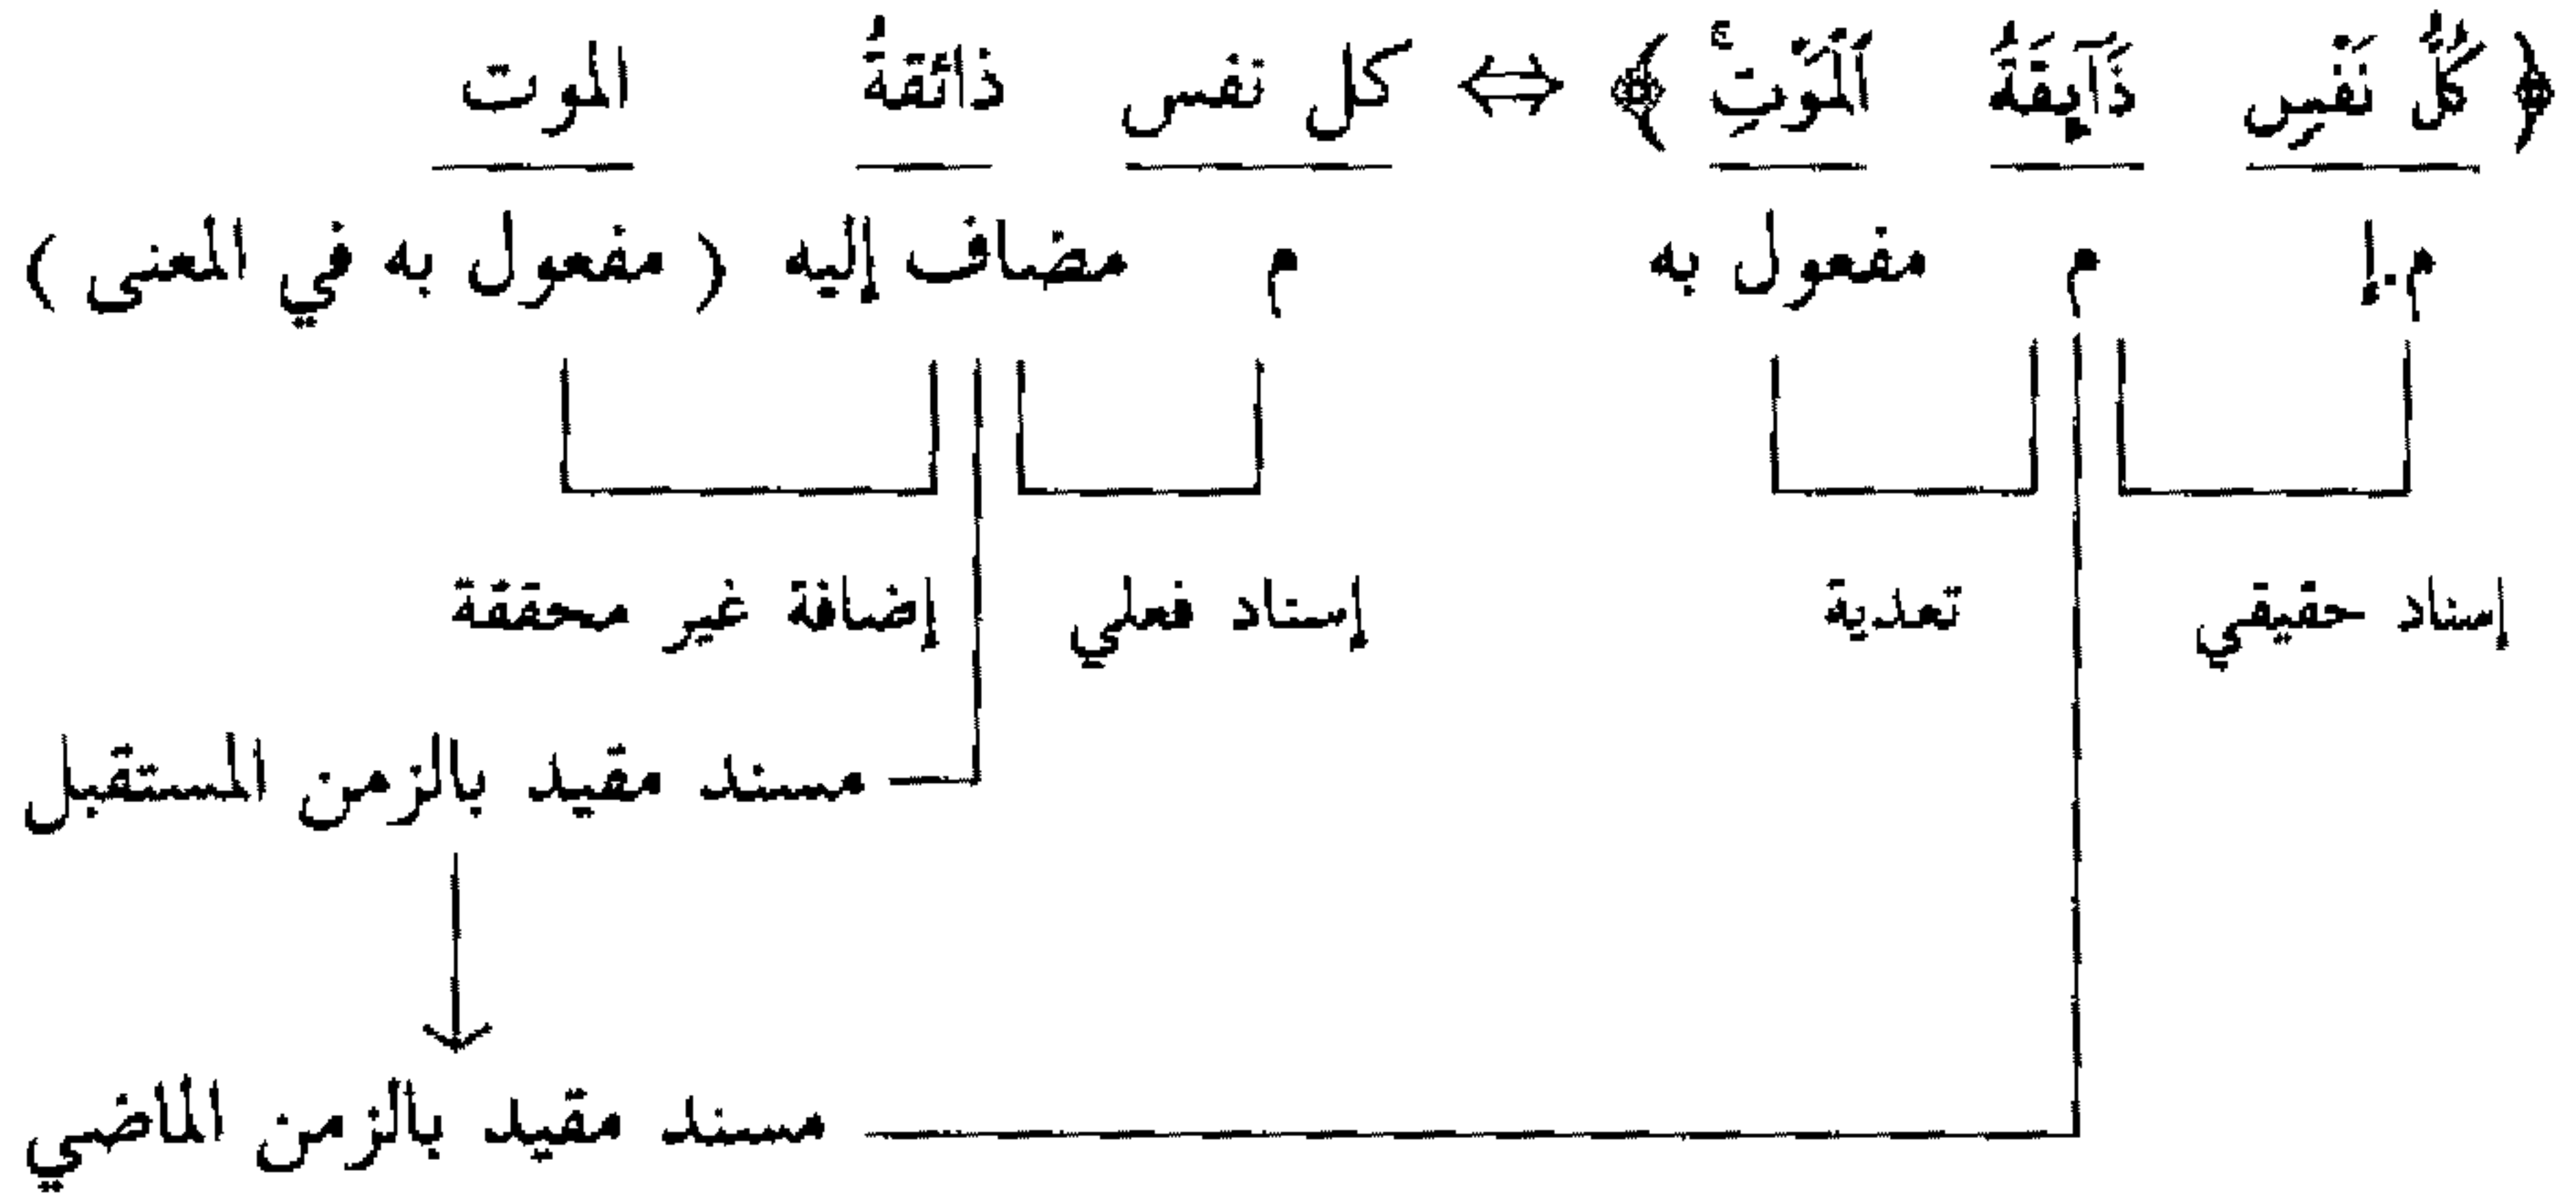 ﴿ كُلُّ نَفْسٍ ذَآئِقَةُ ٱلْمَوْتِ ۚ ﴾ ⇔ كل نفس ذائقةُ الموت
م.إ م مفعول به م مضاف إليه ( مفعول به في المعنى )
إسناد حقيقي تعدية إسناد فعلي إضافة غير محققة
مسند مقيد بالزمن المستقبل
مسند مقيد بالزمن الماضي